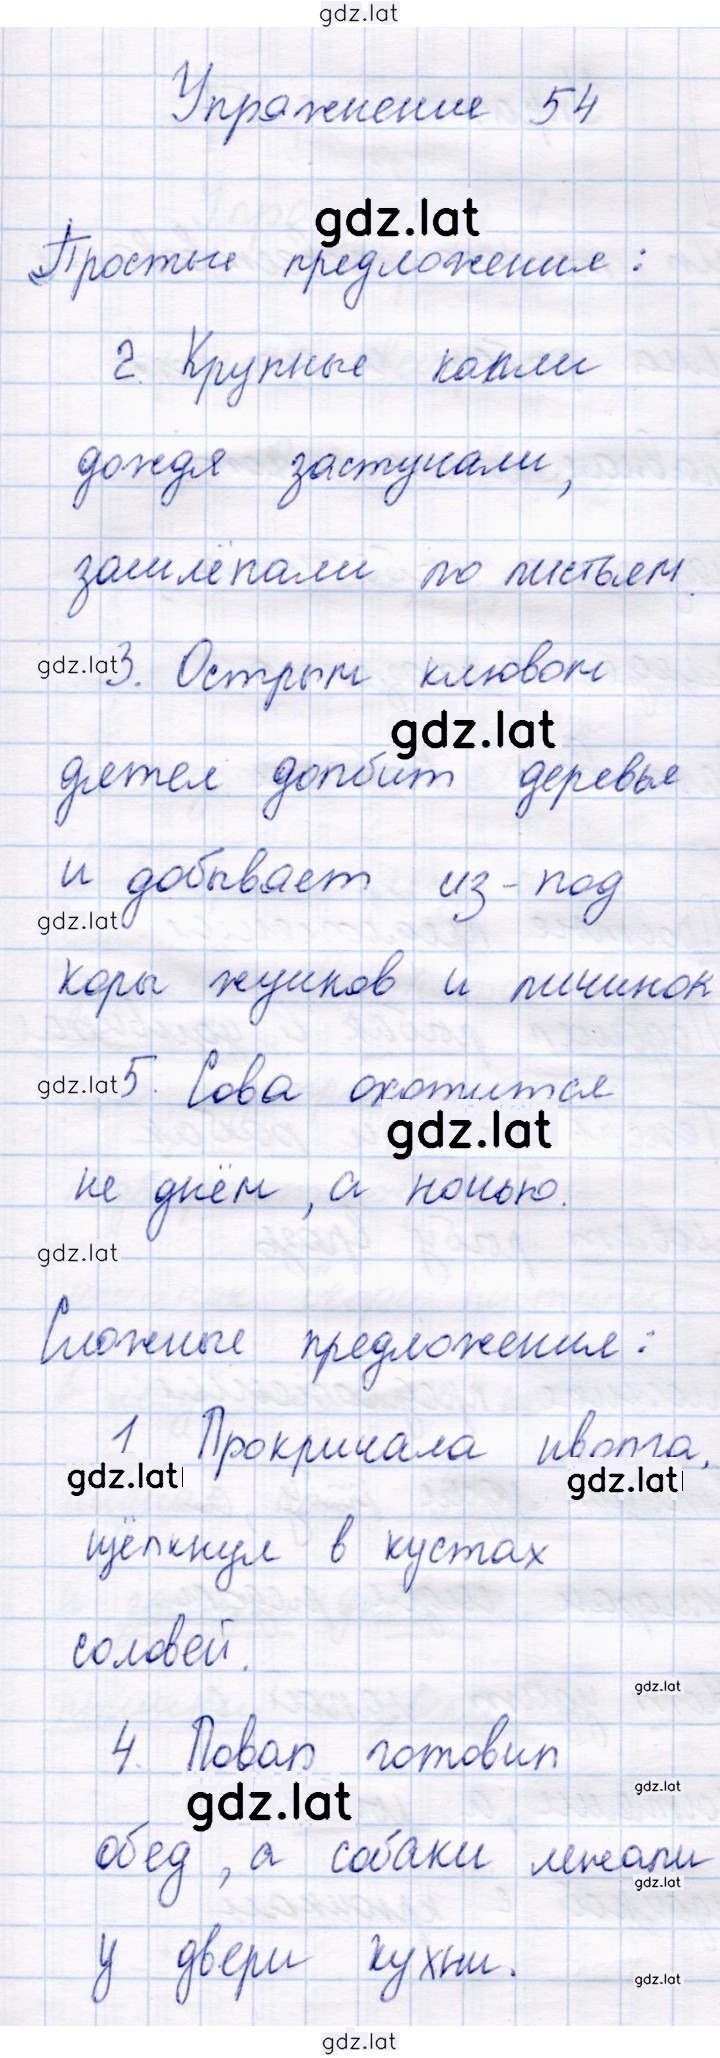 gdz.lat
Упражнение 54
gdz.lat
Простые предложения:
2. Крупные капли
дождя застучали,
зашлёпали по листьям.
gdz.lat
3. Острым клювом
gdz.lat
дятел долбит деревья
и добывает из-под
gdz.lat
коры жучков и личинок
gdz.lat
5. Сова охотится
gdz.lat
не днём, а ночью.
gdz.lat
Сложные предложения:
1 Прокричала иволга,
gdz.lat gdz.lat
щёлкнул в кустах
соловей.
gdz.lat
4. Повар готовил
gdz.lat
gdz.lat
обед, а собаки лежали
gdz.lat
у двери кухни.
gdz.lat
gdz.lat